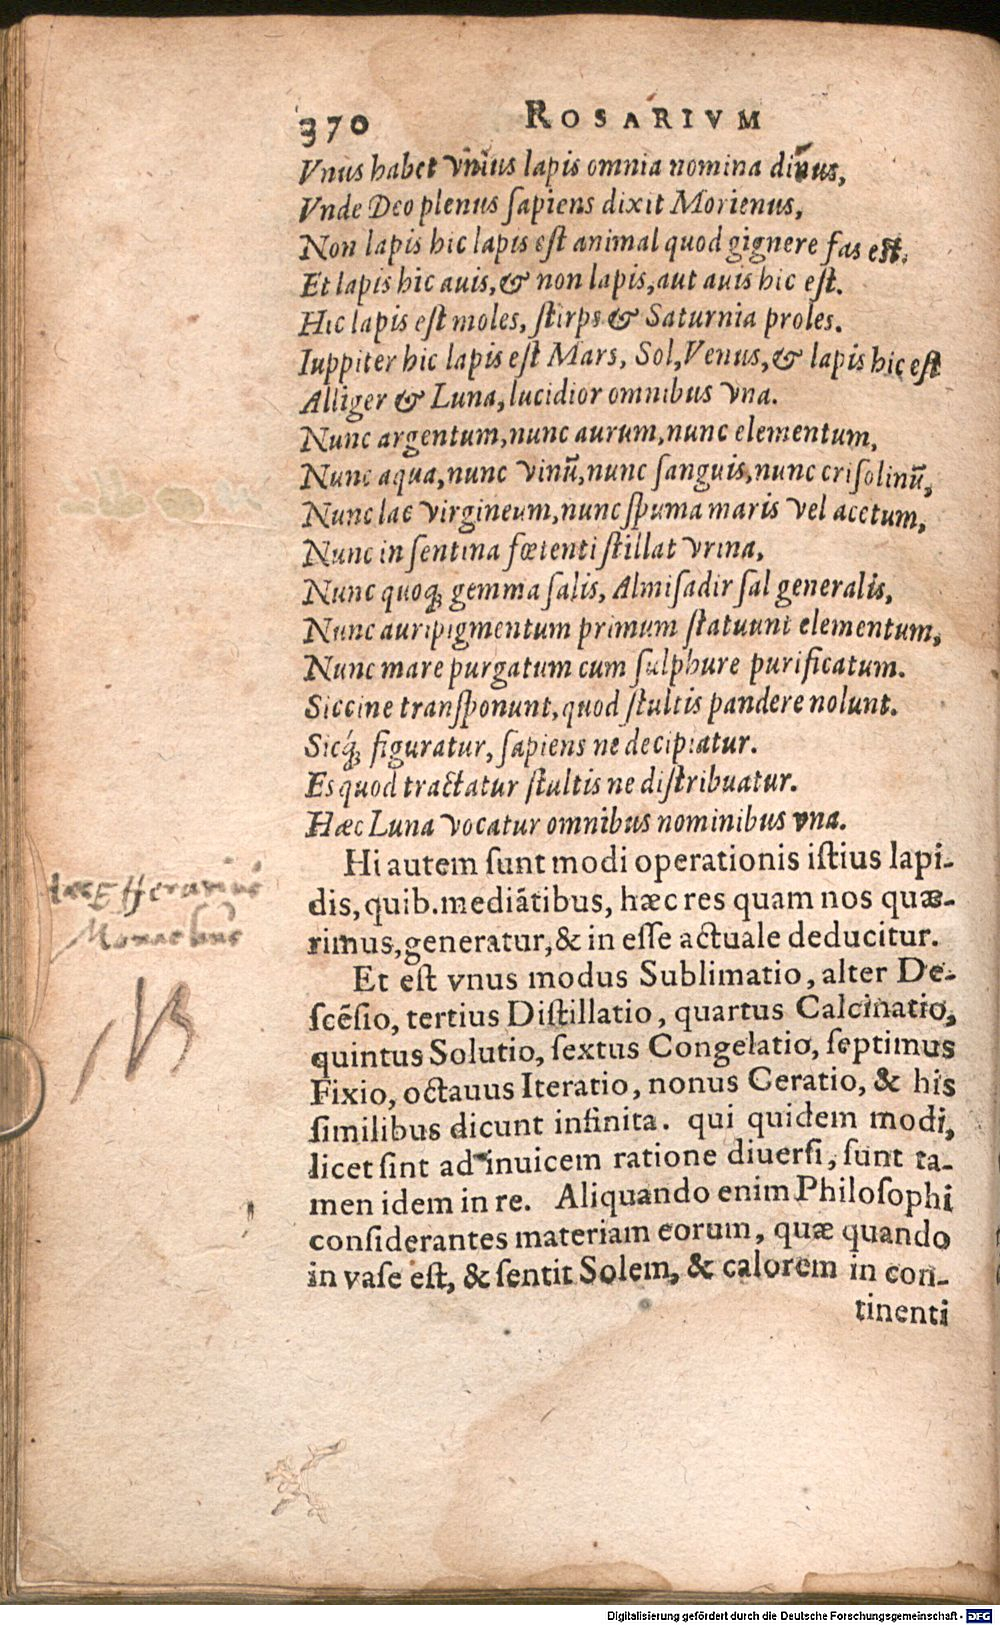 370 ROSARIVM
Vnus habet vnius lapis omnia nomina diuus,
Vnde Deo plenus sapiens dixit Morienus,
Non lapis hic lapis est animal quod gignere fas est.
Et lapis hic auis, & non lapis, aut auis hic est.
Hic lapis est moles, stirps & Saturnia proles.
Iuppiter hic lapis est Mars, Sol, Venus, & lapis hic est
Alliger & Luna, lucidior omnibus vna.
Nunc argentum, nunc aurum, nunc elementum,
Nunc aqua, nunc vinū, nunc sanguis, nunc crisolinū,
Nunc lac virgineum, nunc spuma maris vel acetum,
Nunc in sentina fœtenti stillat vrina,
Nunc quoq; gemma salis, Almisadir sal generalis,
Nunc auripigmentum primum statuunt elementum,
Nunc mare purgatum cum sulphure purificatum.
Siccine transponunt, quod stultis pandere nolunt.
Sicq́; figuratur, sapiens ne decipiatur.
Es quod tractatur stultis ne distribuatur.
Hæc Luna vocatur omnibus nominibus vna.
Hi autem sunt modi operationis istius lapi-
dis, quib. mediātibus, hæc res quam nos quæ-
rimus, generatur, & in esse actuale deducitur.
Et est vnus modus Sublimatio, alter De-
scēsio, tertius Distillatio, quartus Calcinatio,
quintus Solutio, sextus Congelatio, septimus
Fixio, octauus Iteratio, nonus Ceratio, & his
similibus dicunt infinita. qui quidem modi,
licet sint ad inuicem ratione diuersi, sunt ta-
men idem in re. Aliquando enim Philosophi
considerantes materiam eorum, quæ quando
in vase est, & sentit Solem, & calorem in con-
tinenti
Monachus
NB
Digitalisierung gefördert durch die Deutsche Forschungsgemeinschaft - DFG